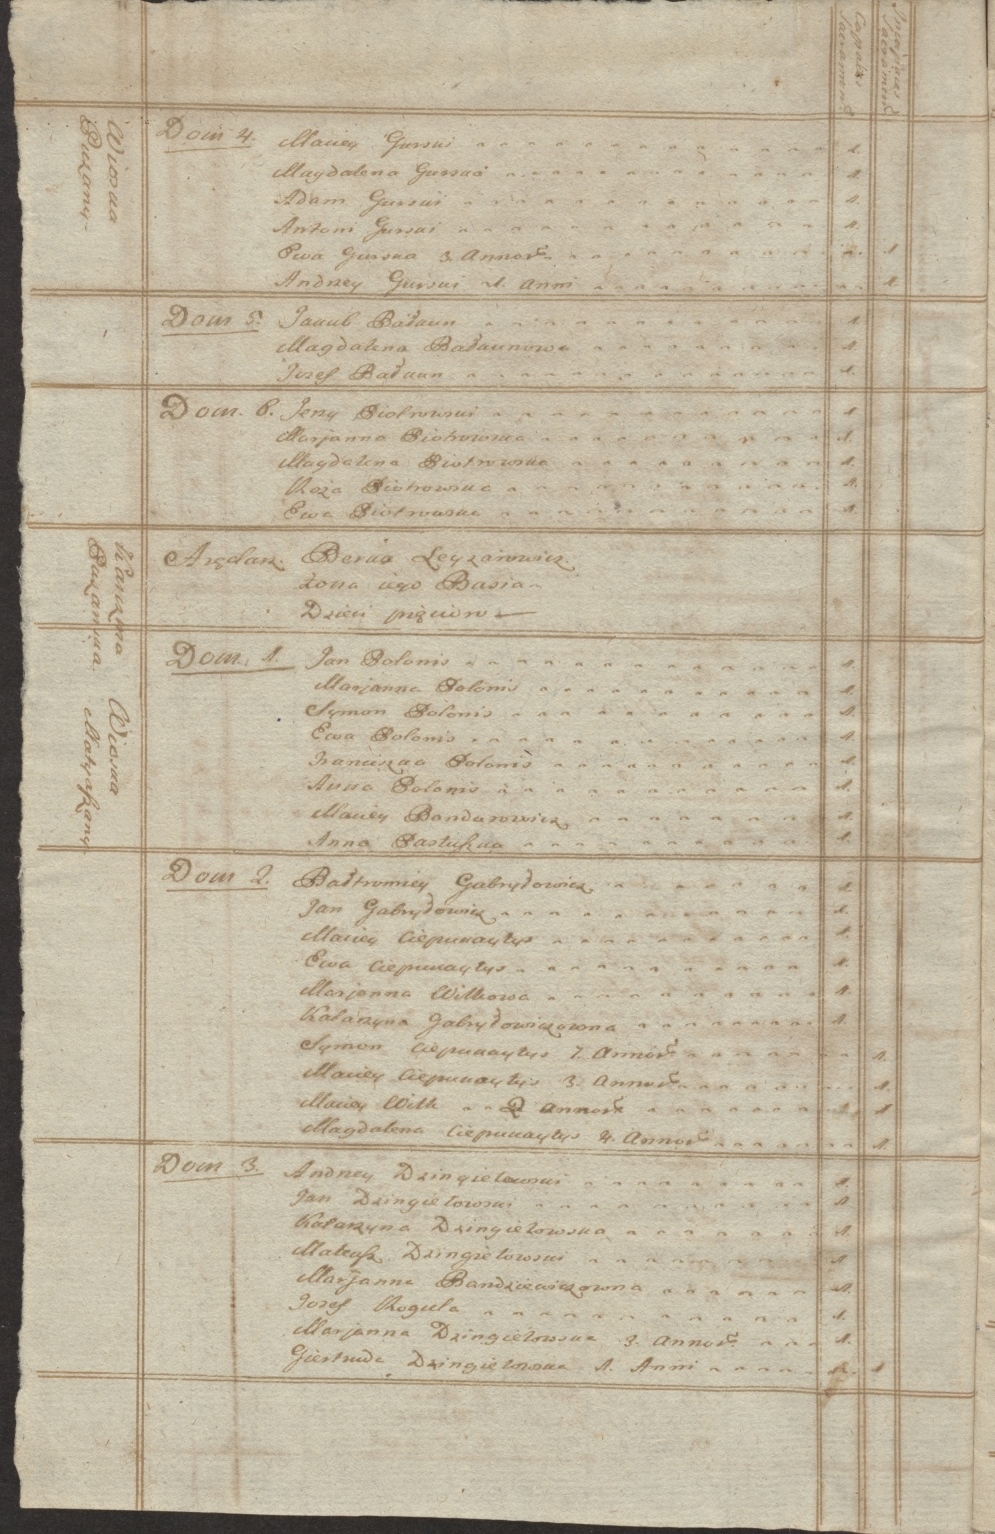 Capaces Sacramenti
Incapaces Sacramenti
Wioska Puzany
Dom 4. Maciey Gurski 1.
Magdalena Gurska 1.
Adam Gurski 1.
Antoni Gurski 1.
Ewa Gurska 3 Annor. 1
Andrzey Gurski 1. Anni 1.
Dom 5. Jakub Bałkun 1.
Magdalena Bałkunowa 1.
Jozef Bałkun 1.
Dom. 6. Jerzy Piotrowski 1
Marjanna Piotrowska 1.
Magdalena Piotrowska 1.
Roża Piotrowska 1.
Ewa Piotrowska 1.
Karczma Puzanska
Arędarz. Berko Leyzarowicz.
żona iego Basia
Dzieci pięcioro
Wioska Matyaszany
Dom. 1. Jan Polonis 1.
Marjanna Polonis 1.
Symon Polonis 1.
Ewa Polonis 1.
Franciszka Polonis 1.
Anna Polonis 1.
Maciey Bondarowicz 1.
Anna Pastuszka 1.
Dom 2. Bałtromiey Gabryłowicz 1.
Jan Gabryłowicz 1.
Maciey Ciepunaytys 1.
Ewa Ciepunaytys 1.
Marjanna Witkowa 1.
Katarzyna Gabryłowiczowna 1.
Symon Ciepunaytys 7. Annor. 1.
Maciey Ciepunaytys 3. Annor. 1.
Maciey Witk 2 Annor. 1
Magdalena Ciepunaytys 4. Annor. 1.
Dom 3. Andrzey Dzingielewski 1.
Jan Dzingielowski 1
Katarzyna Dzingielowska 1.
Mateusz Dzingielowski 1
Maryanna Bandziewiczowna 1.
Jozef Rogula 1.
Marjanna Dzingielowska 3. Annor. 1.
Giertruda Dzingielowska 1. Anni 1